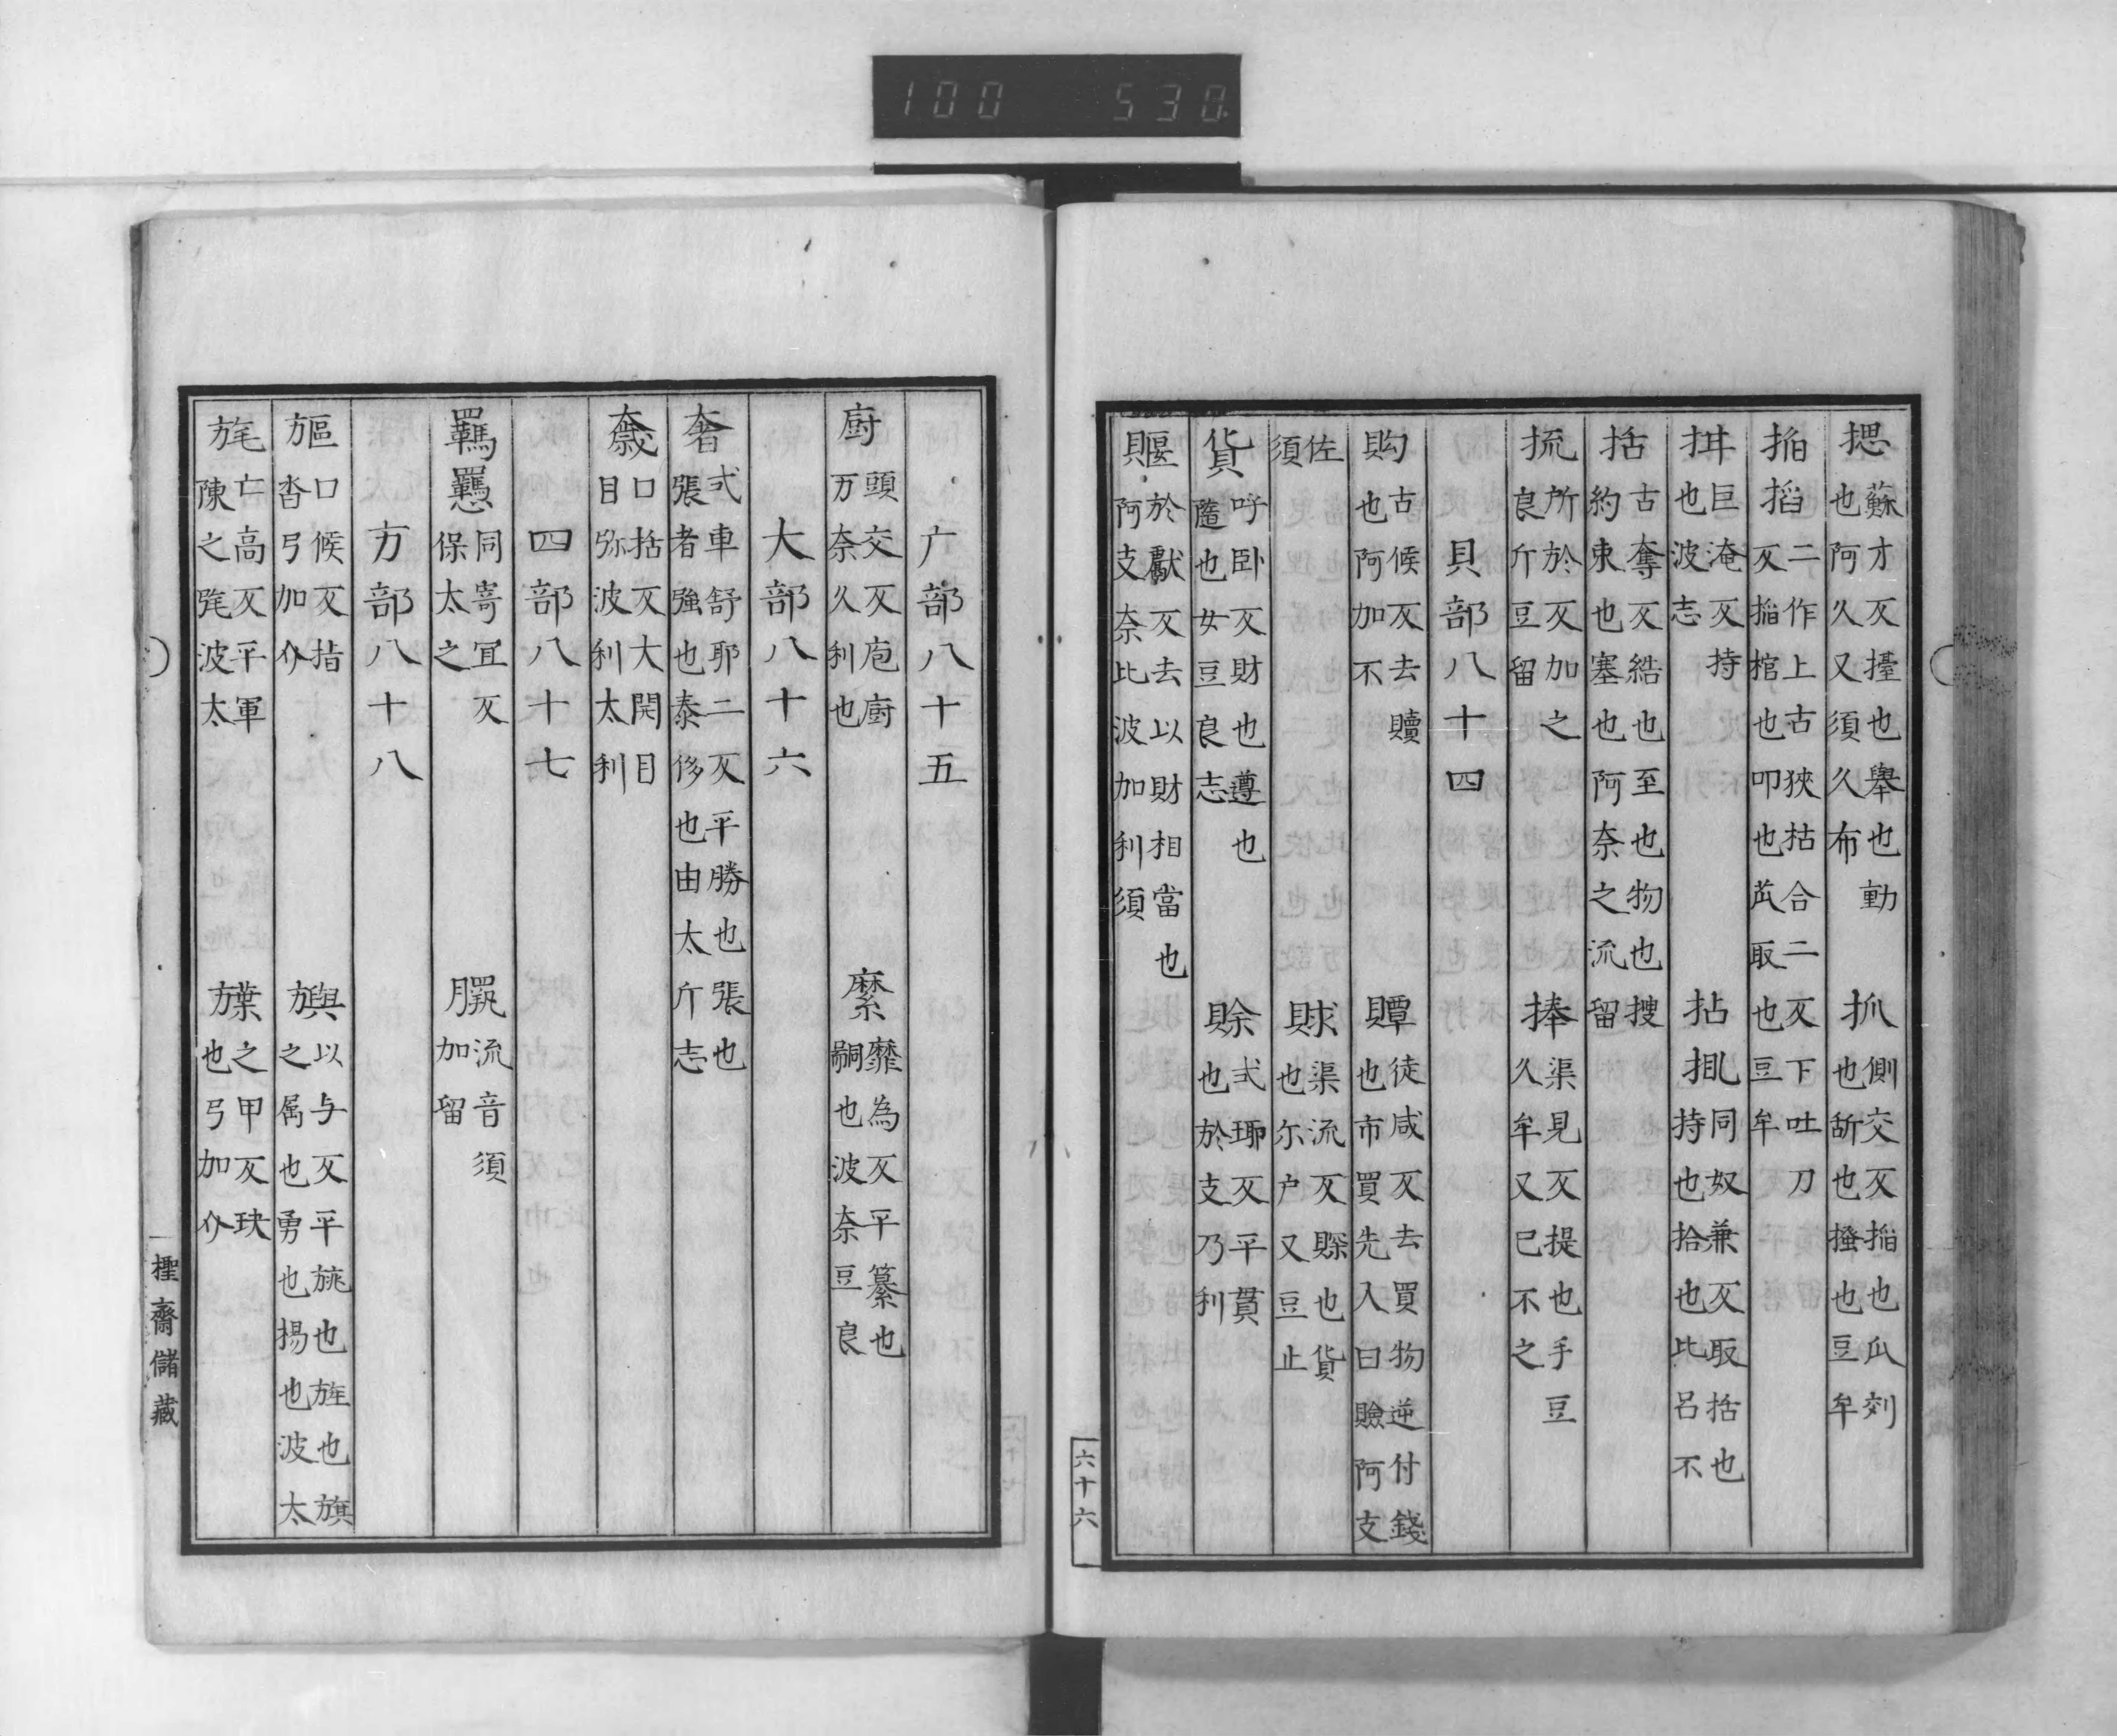 100 530.
揌蘇才反擡也舉也動也阿久又須久布 抓側交反搯也瓜刻也斮也搔也豆牟
掐搯二作上古狹枯合二反下吐刀反搯棺也叩也苽取也豆牟
拑巨淹反持也波志 拈拑同奴兼反取括也持也拾也比呂不
括古奪反結也至也物也搜約束也塞也阿奈之流留
捬所於反加之良斤豆留 捧渠見反提也手豆久牟又巳不之
貝部八十四
購古候反去贖也阿加不 贉徒咸反去買物逆付錢也市買先入曰賺阿支
佐須 賕渠流反賝也貨也尓户又豆止
貨呼卧反財也遵也隨也女豆良志 賖式瑘反平貰也於支乃利
賱於獻反去以財相當也阿支奈比波加利須
六十六
广部八十五
廚頭交反庖廚万奈久利也 縻靡為反平纂也嗣也波奈豆良
大部八十六
奢式車舒耶二反平勝也張也張者強也泰侈也由太斤志
奯口括反大開目目弥波利太利
四部八十七
羈羇同寄冝反保太之 羂流音須加留
方部八十八
㫄口候反指杳弓加介 旟以与反平旐也旌也旗之属也勇也揚也波太
旄亡高反平軍陳之旄波太 㫸之甲反玦也弓加介
檉齋儲藏